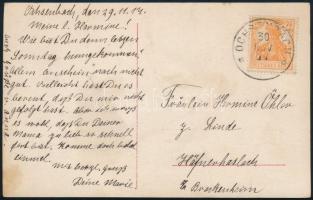 Ochsenbach, den 29.11.14.
Meine l. Hermine!
Wie bist Du denn letzten
Sonntag heimgekommen?
allem Anschein nach nicht
gut. Vielleicht hast Du es
bereut, daß Du mir nicht
gefolgt hast. Aber ich
es wohl, daß Du Deiner
Mama zu lieb so schnell
fort bist. Komme doch bald
einmal.
Mit herzl. Gruß
Deine Marie.
OCHSENBACH
30
NOV
Fräulein Hermine Öhler
z. Linde
Häfnerhaslach
Brackenheim